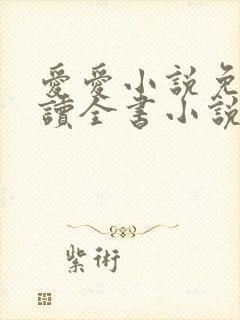 愛愛小説免
讀全書小說
紫術